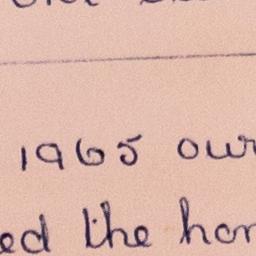 1965 our
ed the hor